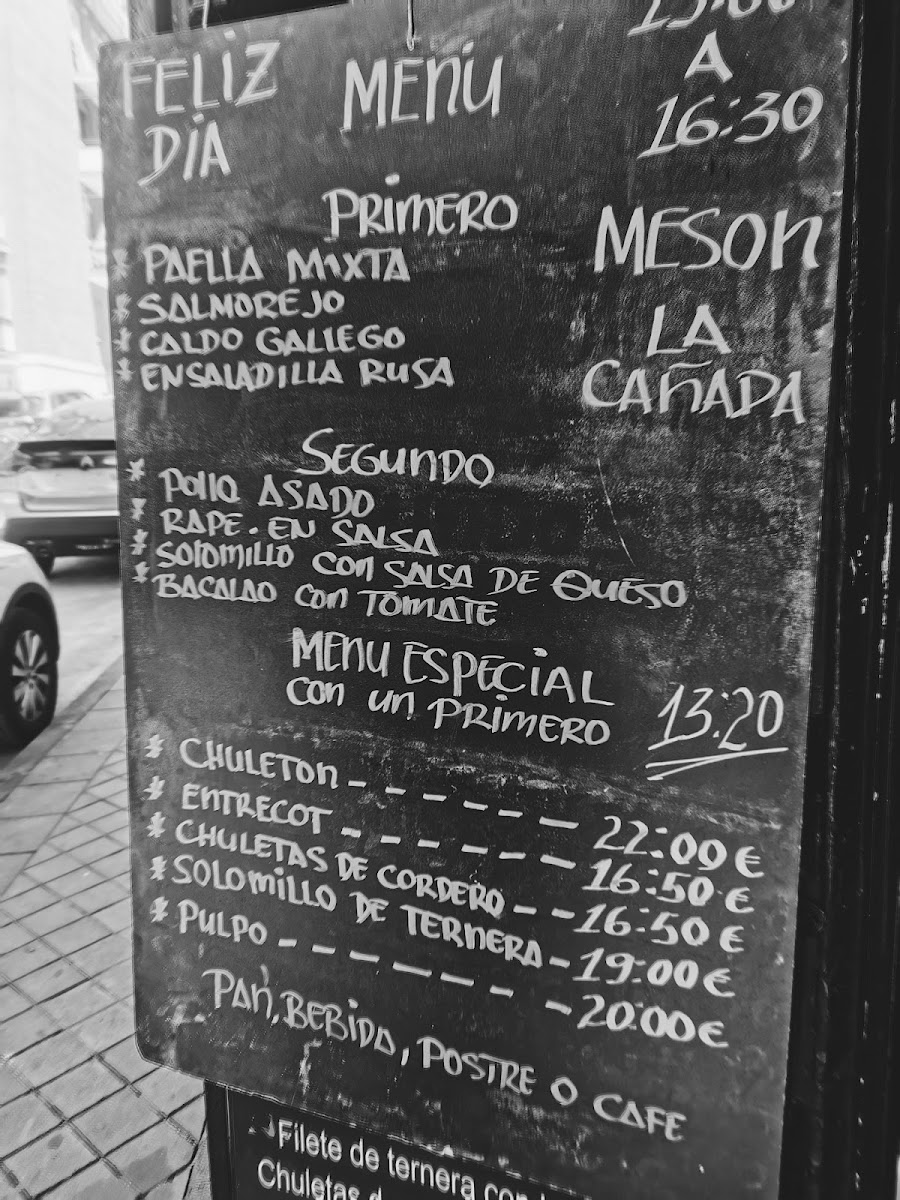 FELIZ DIA
MENÚ
13:00
A
16:30
MESON
LA
CAÑADA
PRIMERO
* PAELLA MIXTA
* SALMOREJO
* CALDO GALLEGO
* ENSALADILLA RUSA
SEGUNDO
* POLLO ASADO
* RAPE. EN SALSA
* SOLOMILLO CON SALSA DE QUESO
* BACALAO CON TOMATE
MENU ESPECIAL
CON UN PRIMERO
13:20
* CHULETON - - - - - - 22:00 €
* ENTRECOT - - - - - - 16:50 €
* CHULETAS DE CORDERO - - 16:50 €
* SOLOMILLO DE TERNERA - 19:00 €
* PULPO - - - - - - - 20:00 €
PAN, BEBIDA, POSTRE O CAFE
Filete de ternera con
Chuletas d